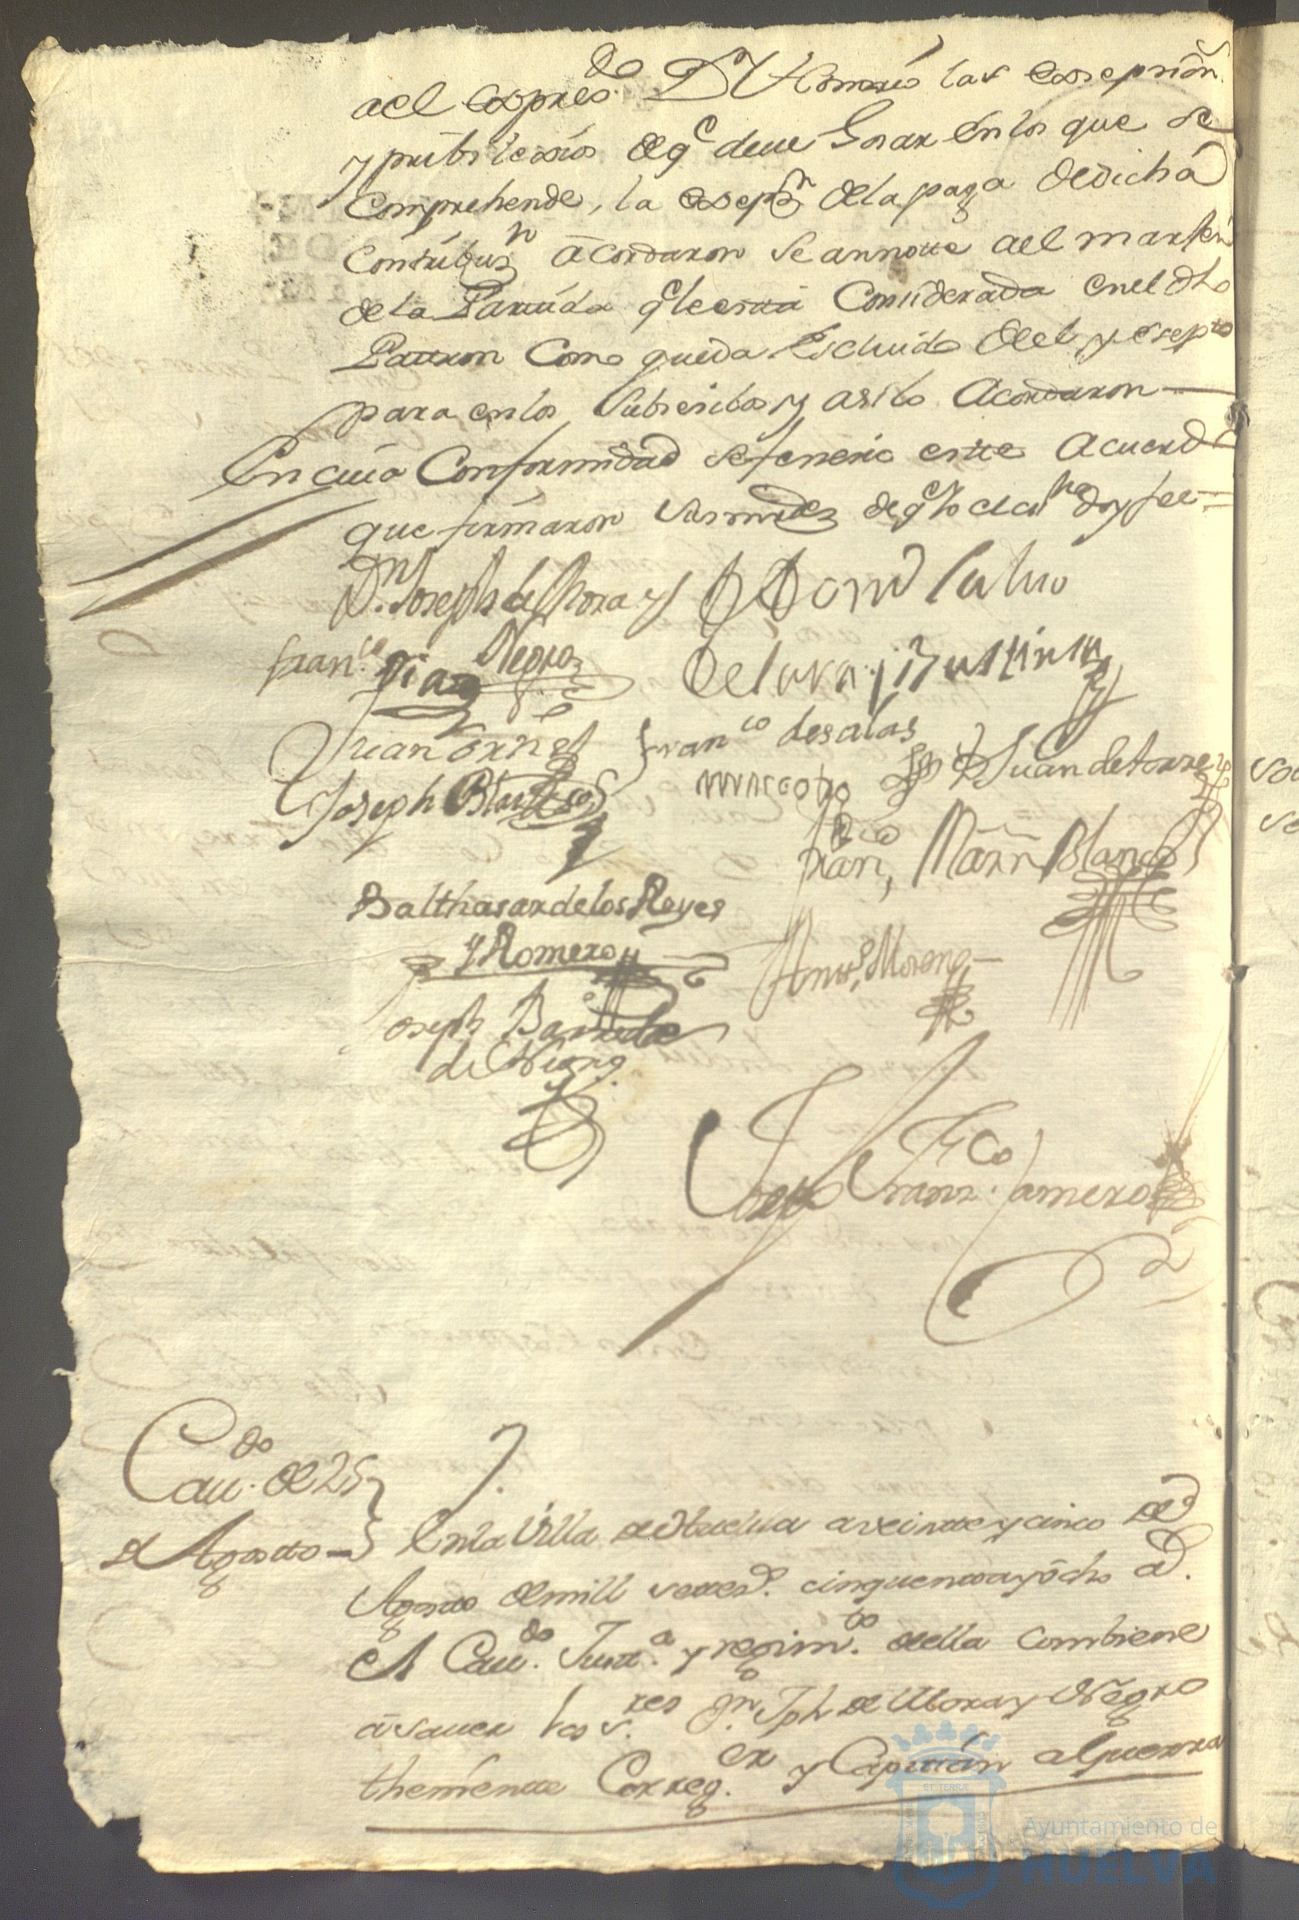 ael expres.do Dn Thomas las exsepsion.
y pribilexios de q.e deue Gosar en los que se
Comprehende, la exsepn. de la paga de dicha
Contribus.n acordaron se annotte ael marxen
de la Partida q.e le está Considerada en el dho
Patron Como queda Escluido de el y exsepto
para en los Subsesibos y asi lo Acordaron
En cuia Conformidad se feneció este Acuerdo
que firmaron sus mrdes de q.e Yo el esn.o doy fee =
Dn. Joseph de Mora y
Negro
Don
de Lara y Bustim
Fran.co Diaz
Juan
Fran.co de salas
moscoso
Dn Juan de torres
Joseph Blanco
Fran.co Marin Blanco
Balthasar de los Reyes
y Romero
Anto. Moreno
Joseph
Joseph Franco. Romero
Cau.do de 25
de Agosto
En la Villa de Huelua a veinte y cinco de
Agosto de mill settes.s cinquenta y ocho a.s
El Cau.do Just.a y regim.to de ella combiene
a sauer los s.res Dn. Jph de Mora y Negro
theniente Correg.or y Capitan a Guerra
Ayuntamiento de
HUELVA